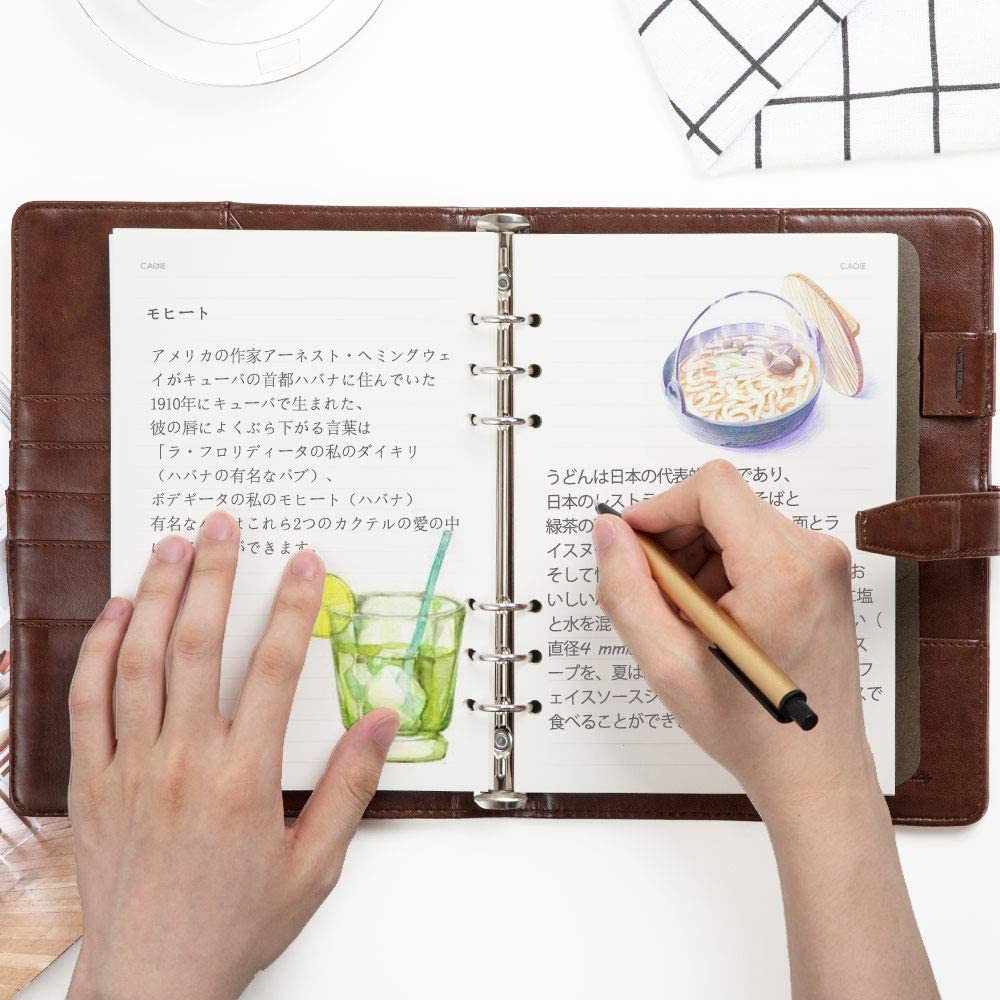 CAGIE
モヒート
アメリカの作家アーネスト・ヘミングウェ
イがキューバの首都ハバナに住んでいた
1910年にキューバで生まれた、
彼の唇によくぶら下がる言葉は
「ラ・フロリディータの私のダイキリ
（ハバナの有名なパブ）、
ボデギータの私のモヒート（ハバナ）
有名な はこれら2つのカクテルの愛の中
ができます。
CAGIE
うどんは日本の代表的 であり、
日本のレストラ そばと
緑茶の 面とラ
イスヌ
そして お
いしい に塩
と水を混 い（
直径4 mm ス
ープを、夏は フ
ェイスソースシ スで
食べることができ